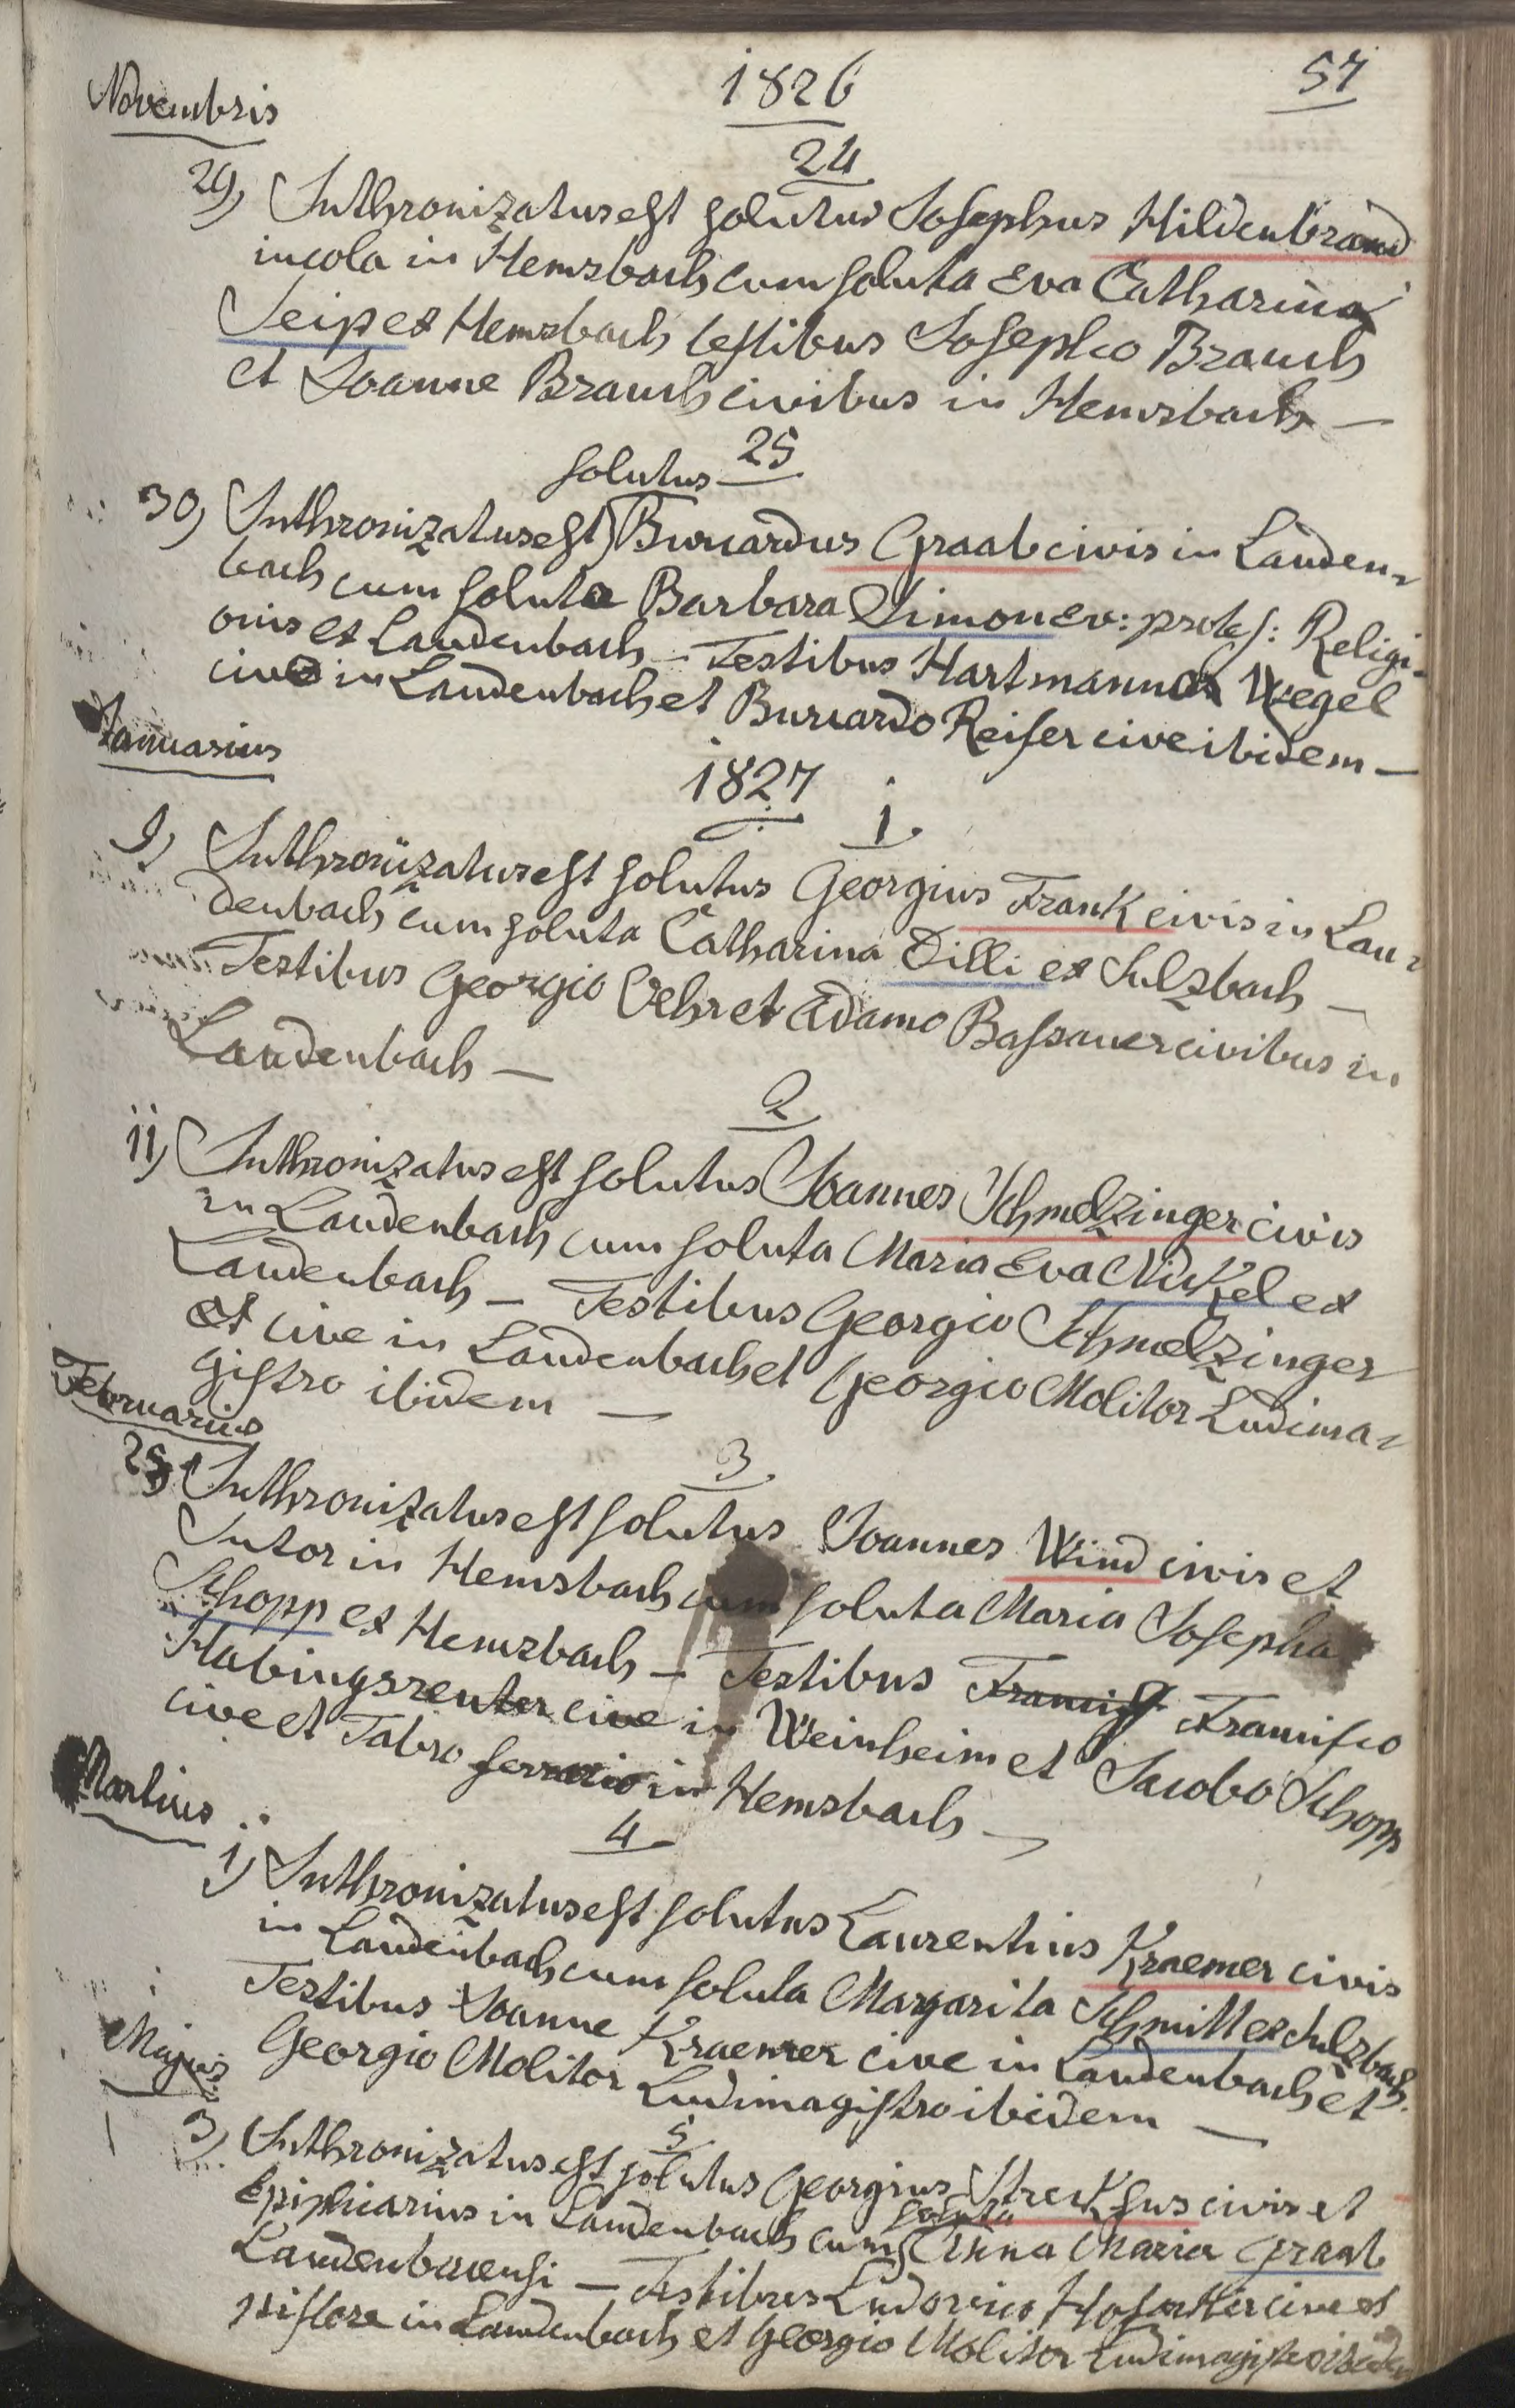 1826
57
Novembris
24
29) Inthronizatus est solutus Josephus Hildenbrand
incola in Hemsbach cum soluta Eva Catharina
Seip ex Hemsbach testibus Josepho Brauch
et Joanne Brauch civibus in Hemsbach —
25
solutus
30) Inthronizatus est Burcardus Graab civis in Lauden-
bach cum soluta Barbara Simon ev: protes: Religi-
onis ex Laudenbach — Testibus Hartmanno Wegel
cive in Laudenbach et Burcardo Reiser cive ibidem —
Januarius
1827
1
9) Inthronizatus est solutus Georgius Frank civis in Lau-
denbach cum soluta Catharina Dilli ex Sulzbach —
Testibus Georgio Vehr et Adamo Bassauer civibus in
Laudenbach —
2
11) Inthronizatus est solutus Joannes Schmelzinger civis
in Laudenbach cum soluta Maria Eva Nickel ex
Laudenbach — Testibus Georgio Schmelzinger
et cive in Laudenbach et Georgio Molitor Ludima-
gistro ibidem —
Februarius
3
25) Inthronizatus est solutus Joannes Wind civis et
Sutor in Hemsbach cum soluta Maria Josepha
Schopp ex Hemsbach — Testibus Francis Francisco
Habingsreuter cive in Weinheim et Jacobo Schopp
cive et Fabro ferrario in Hemsbach —
Martius
4
1) Inthronizatus est solutus Laurentius Kraemer civis
in Laudenbach cum soluta Margarita Schmitt ex Sulzbach.
Testibus Joanne Kraemer cive in Laudenbach et
Georgio Molitor Ludimagistro ibidem —
Majus
5
3) Inthronizatus est solutus Georgius Streckfus civis et
soluta
Ephipiarius in Laudenbach cum Anna Maria Graab
Laudenbacensi — Testibus Ludovico cive et
pistore in Laudenbach et Georgio Molitor Ludimagistro ibidem